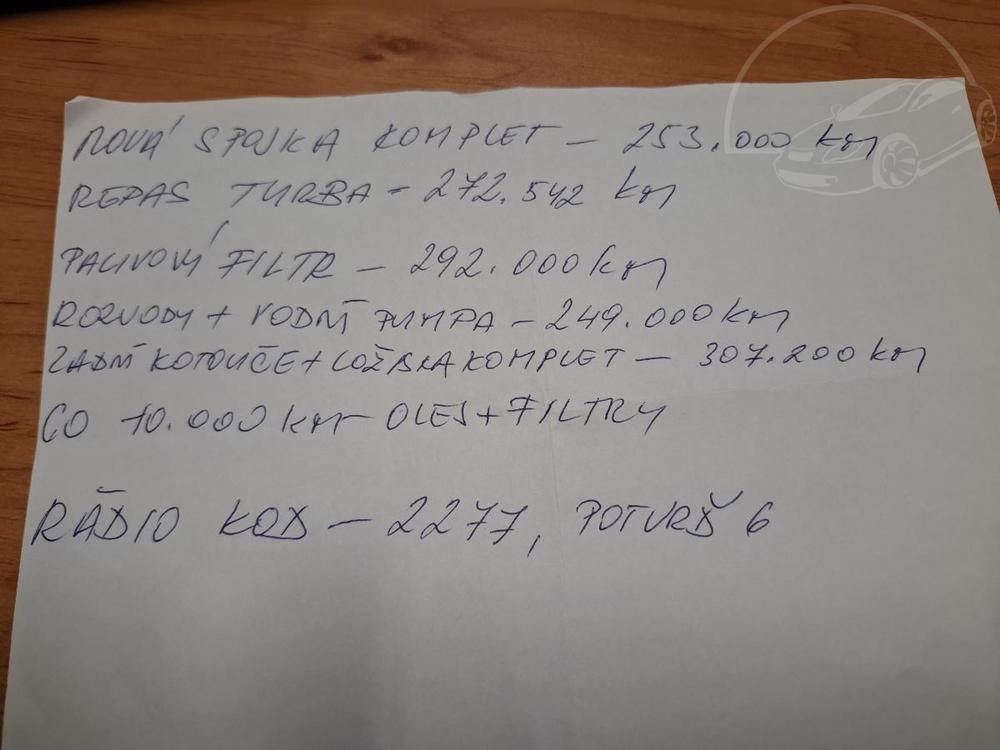 NOVÁ SPOJKA KOMPLET – 253.000 km
REPAS TURBA - 272.542 km
PALIVOVÝ FILTR – 292.000 km
ROZVODY + VODNÍ PUMPA – 249.000 km
ZADNÍ KOTOUČE + LOŽISKA KOMPLET – 307.200 km
CO 10.000 km OLEJ + FILTRY
RÁDIO KOD – 2277, POTVRĎ 6